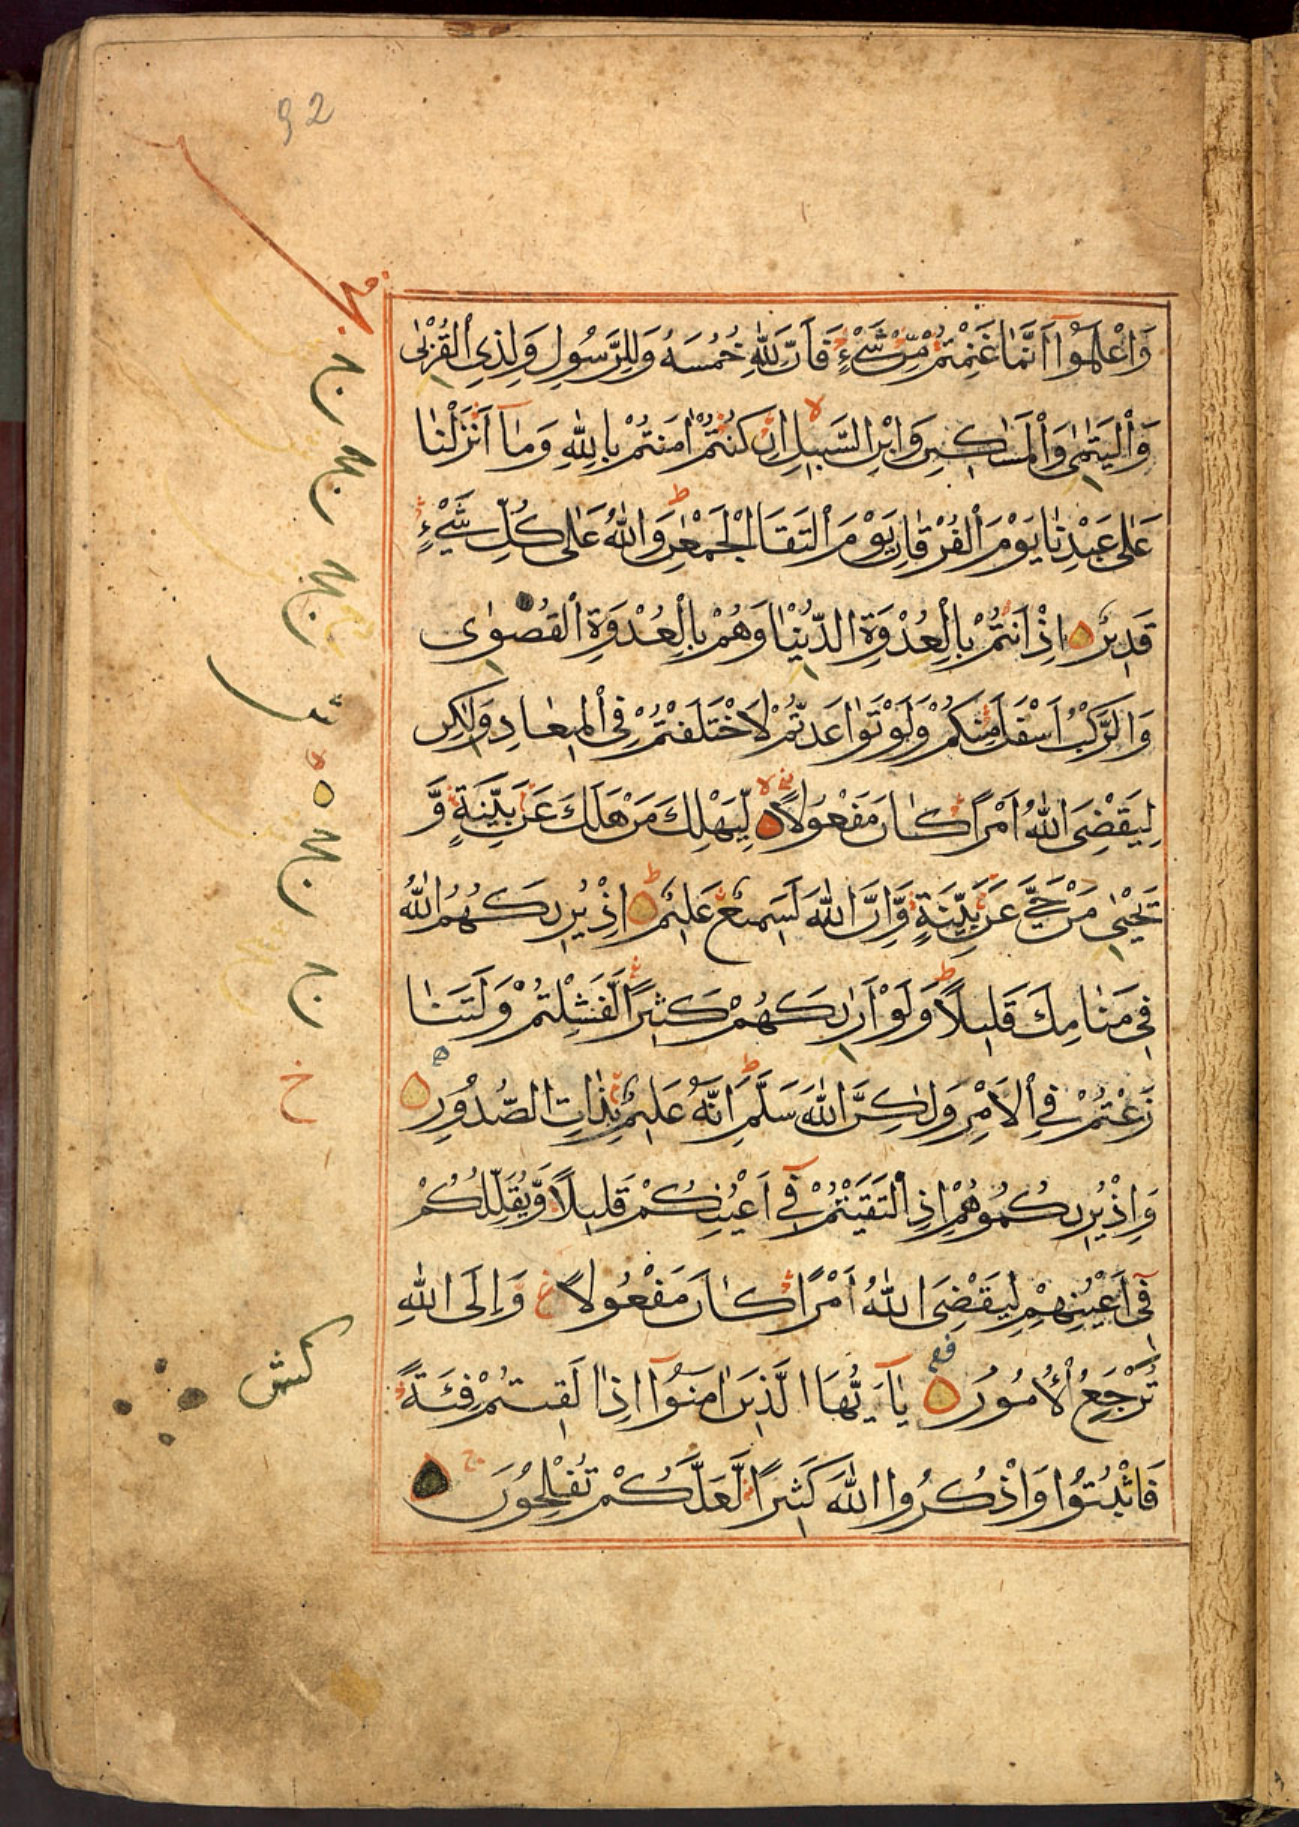 92
وَاعْلَمُوٓا اَنَّمَا غَنِمْتُمْ مِّنْ شَىْءٍ فَاَنَّ لِلّٰهِ خُمُسَهُ وَلِلرَّسُولِ وَلِذِى الْقُرْبٰى
وَالْيَتٰمٰى وَالْمَسَاكِينِ وَابْنِ السَّبِيلِ اِنْ كُنْتُمْ اٰمَنْتُمْ بِاللّٰهِ وَمَآ اَنْزَلْنَا
عَلٰى عَبْدِنَا يَوْمَ الْفُرْقَانِ يَوْمَ الْتَقَا الْجَمْعٰنِ وَاللّٰهُ عَلٰى كُلِّ شَيْءٍ
قَدِيرٌ اِذْ اَنْتُمْ بِالْعُدْوَةِ الدُّنْيَا وَهُمْ بِالْعُدْوَةِ الْقُصْوٰى
وَالرَّكْبُ اَسْفَلَ مِنْكُمْ وَلَوْ تَوَاعَدْتُّمْ لَاخْتَلَفْتُمْ فِى الْمِيعَادِ وَلٰكِنْ
لِيَقْضِىَ اللّٰهُ اَمْرًا كَانَ مَفْعُولًا لِّيَهْلِكَ مَنْ هَلَكَ عَنْ بَيِّنَةٍ وَّ
يَحْيٰى مَنْ حَيَّ عَنْ بَيِّنَةٍ وَّاِنَّ اللّٰهَ لَسَمِيعٌ عَلِيمٌ اِذْ يُرِيكَهُمُ اللّٰهُ
فِى مَنَامِكَ قَلِيلًا وَلَوْ اَرٰىكَهُمْ كَثِيرًا لَّفَشِلْتُمْ وَلَتَنَا
زَعْتُمْ فِى الْاَمْرِ وَلٰكِنَّ اللّٰهَ سَلَّمَ اِنَّهُ عَلِيمٌ بِذَاتِ الصُّدُورِ
وَاِذْ يُرِيكُمُوهُمْ اِذِ الْتَقَيْتُمْ فِىٓ اَعْيُنِكُمْ قَلِيلًا وَّيُقَلِّلُكُمْ
فِىٓ اَعْيُنِهِمْ لِيَقْضِىَ اللّٰهُ اَمْرًا كَانَ مَفْعُولًا وَاِلَى اللّٰهِ
تُرْجَعُ الْاُمُورُ يٰآ اَيُّهَا الَّذِينَ اٰمَنُوٓا اِذَا لَقِيتُمْ فِئَةً
فَاثْبُتُوا وَاذْكُرُوا اللّٰهَ كَثِيرًا لَّعَلَّكُمْ تُفْلِحُونَ